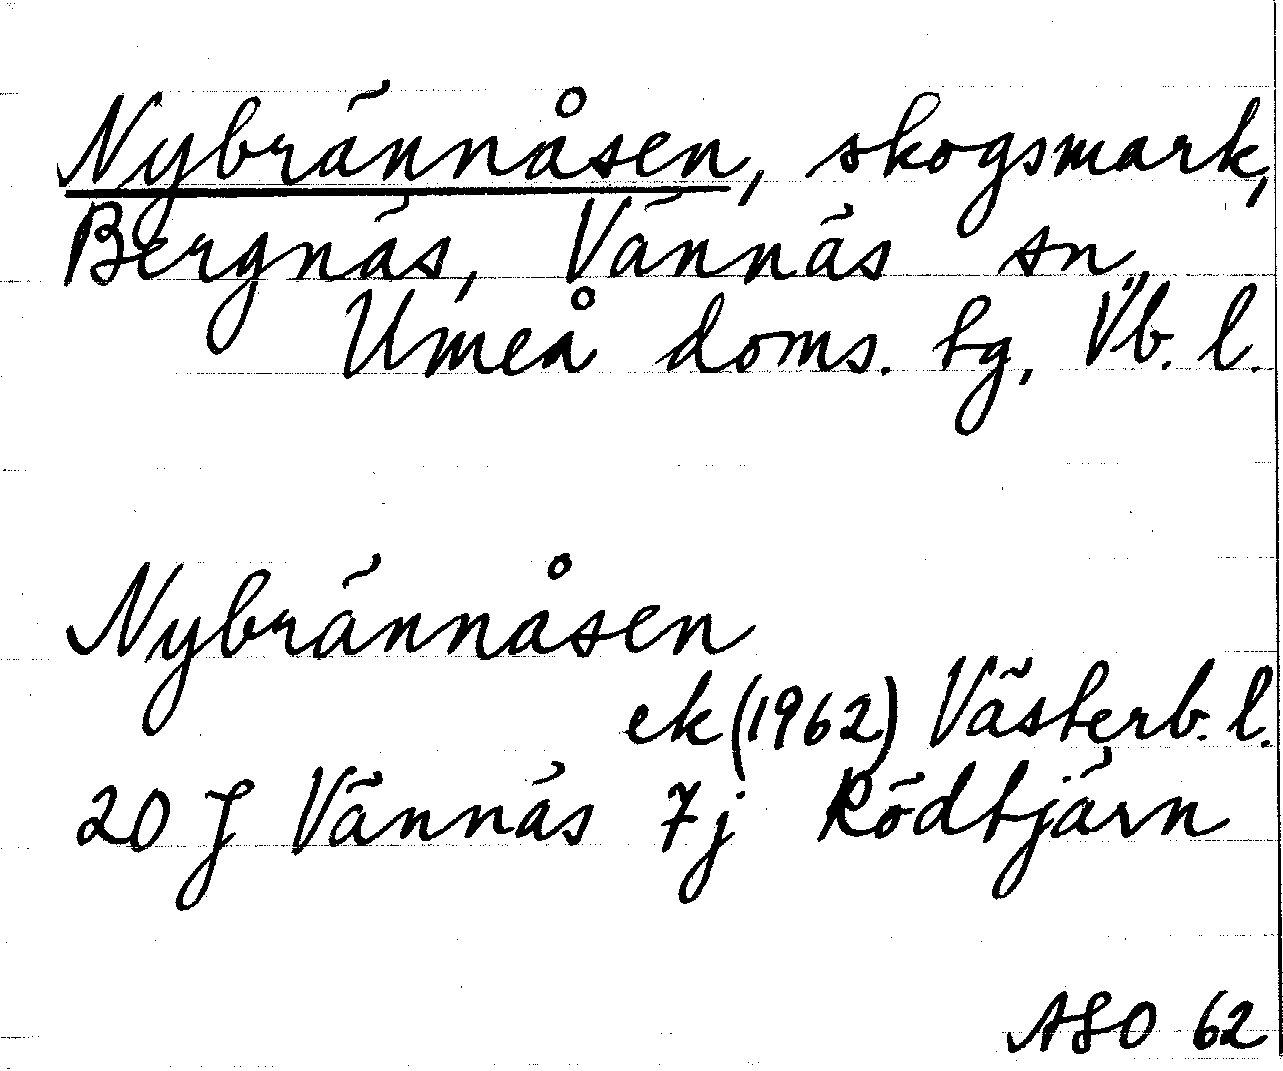 Nybrännåsen, skogsmark,
Bergnäs, Vännäs sn,
Umeå doms. tg, Vb. l.
Nybrännåsen
ek (1962) Västerb. l.
20 J Vännäs 7j Rödtjärn
ASO 62